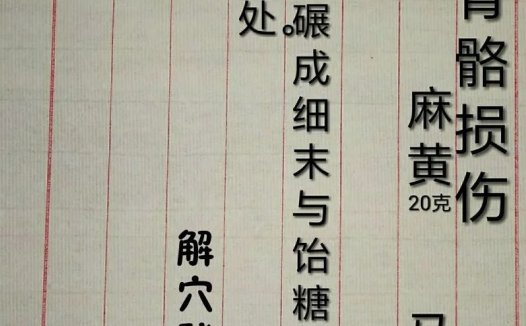 骨骼损伤
麻黄20克
碾成细末与饴糖
处。
解穴